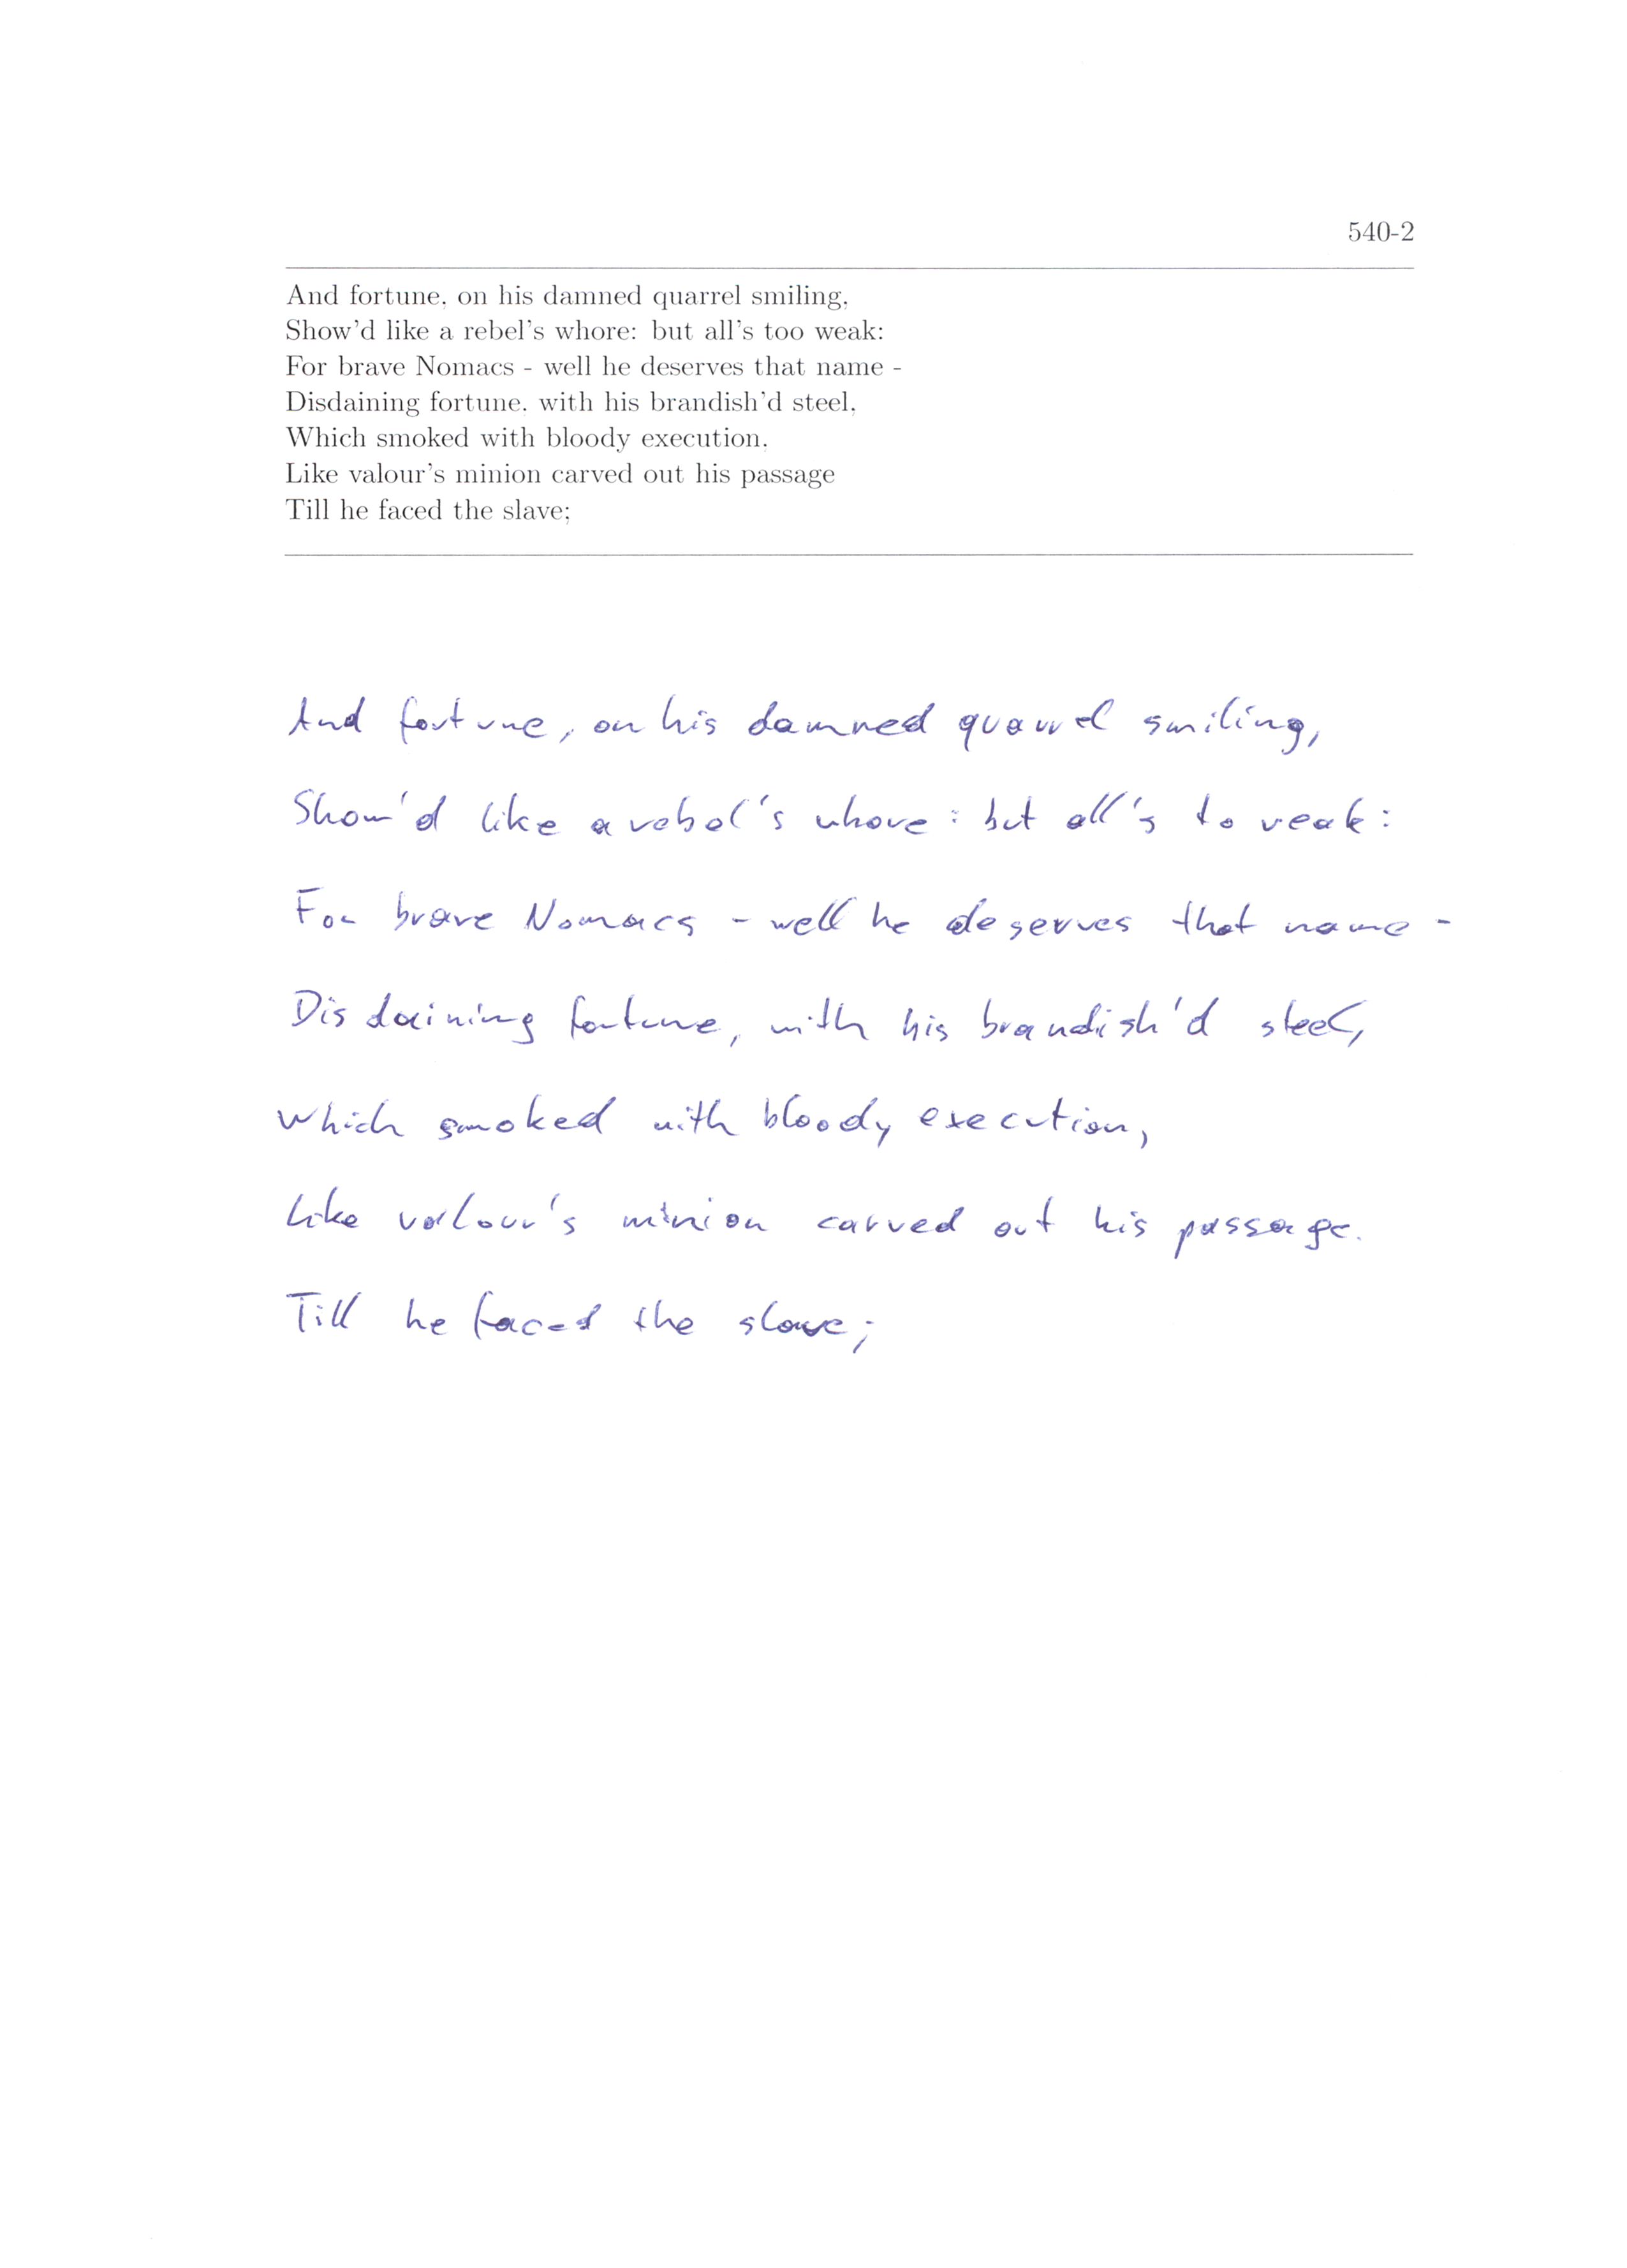 540-2
And fortune, on his damned quarrel smiling,
Show'd like a rebel's whore: but all's too weak:
For brave Nomacs - well he deserves that name -
Disdaining fortune, with his brandish'd steel,
Which smoked with bloody execution,
Like valour's minion carved out his passage
Till he faced the slave;
And fortune, on his damned quarrel smiling,
Show'd like a rebel's whore: but all's to weak:
For brave Nomacs - well he deserves that name -
Disdaining fortune, with his brandish'd steel,
Which smoked with bloody execution,
Like valour's minion carved out his passage.
Till he faced the slave;